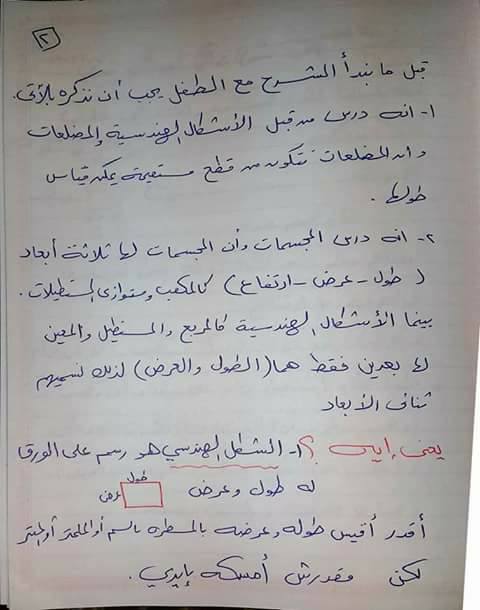 ٢
قبل ما نبدأ الشرح مع الطفل يجب أن نذكره بالآتي.
١- انه درس من قبل الأشكال الهندسية والمضلعات
وان المضلعات تتكون من قطع مستقيمة يمكن قياس
طولها.
٢- انه درس المجسمات وأن المجسمات لها ثلاثة أبعاد
( طول - عرض - ارتفاع ) كالمكعب ومتوازى المستطيلات.
بينما الأشكال الهندسية كالمربع والمستطيل والمعين
لها بعدين فقط هما (الطول والعرض) لذلك نسميهم
ثنائى الأبعاد
يعنى إيه ؟ ١- الشكل الهندسي هو رسم على الورقة
له طول وعرض
طول
عرض
أقدر أقيس طوله وعرضه بالمسطره بالسم أو الملمتر أو المتر
لكن مقدرش أمسكه بإيدي.